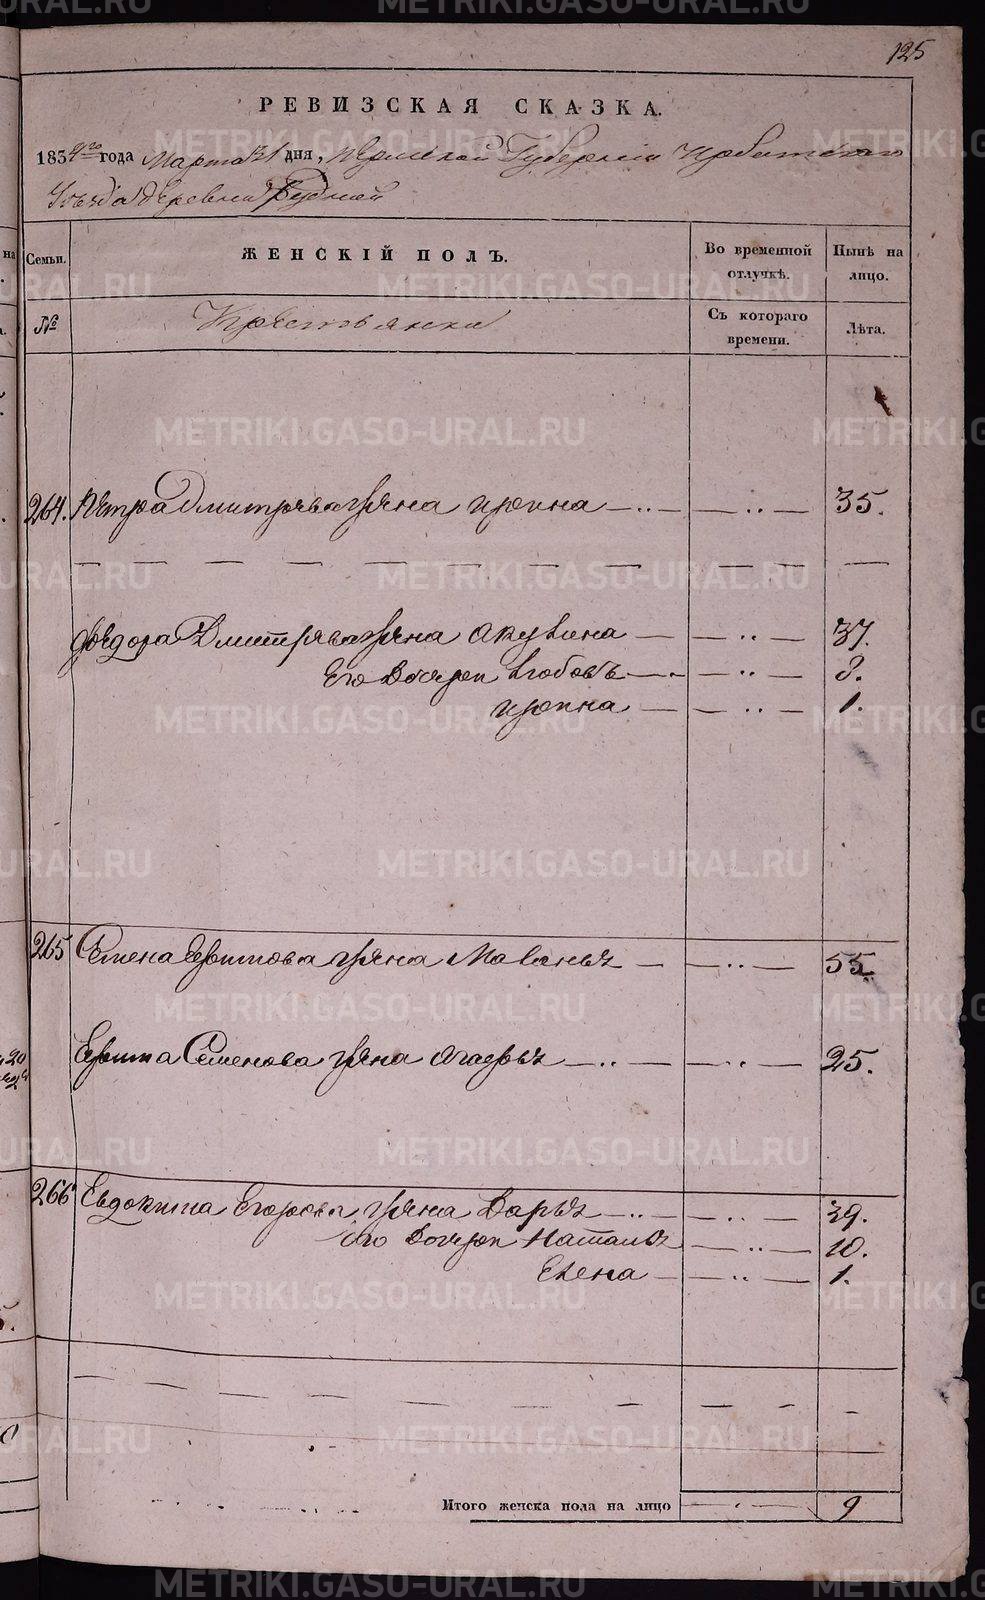 125
РЕВИЗСКАЯ СКАЗКА.
1834го года Марта 31 дня, Пермской Губерніи Ирбитского
Уѣзда деревни Рудной
Семьи. ЖЕНСКІЙ ПОЛЪ. Во временной отлучкѣ. Нынѣ на лицо.
№ Крестьянки Съ котораго времени. Лѣта.
264. Петра Дмитрева жена Ирина — .. — — .. — 35.
Федора Дмитрева жена Акулина — — .. — 37.
Его дочери Любовь — — .. — 3.
Ирина — — .. — 1.
265 Семена Ефимова жена Маланья — — .. — 55.
Ефима Семенова жена Агафья — .. — — .. — 25.
266 Евдокима Егорова жена Дарья — .. — — .. — 39.
Его дочери Наталья — .. — 10.
Елена — — .. — 1.
Итого женска пола на лицо — . — 9
METRIKI.GASO-URAL.RU